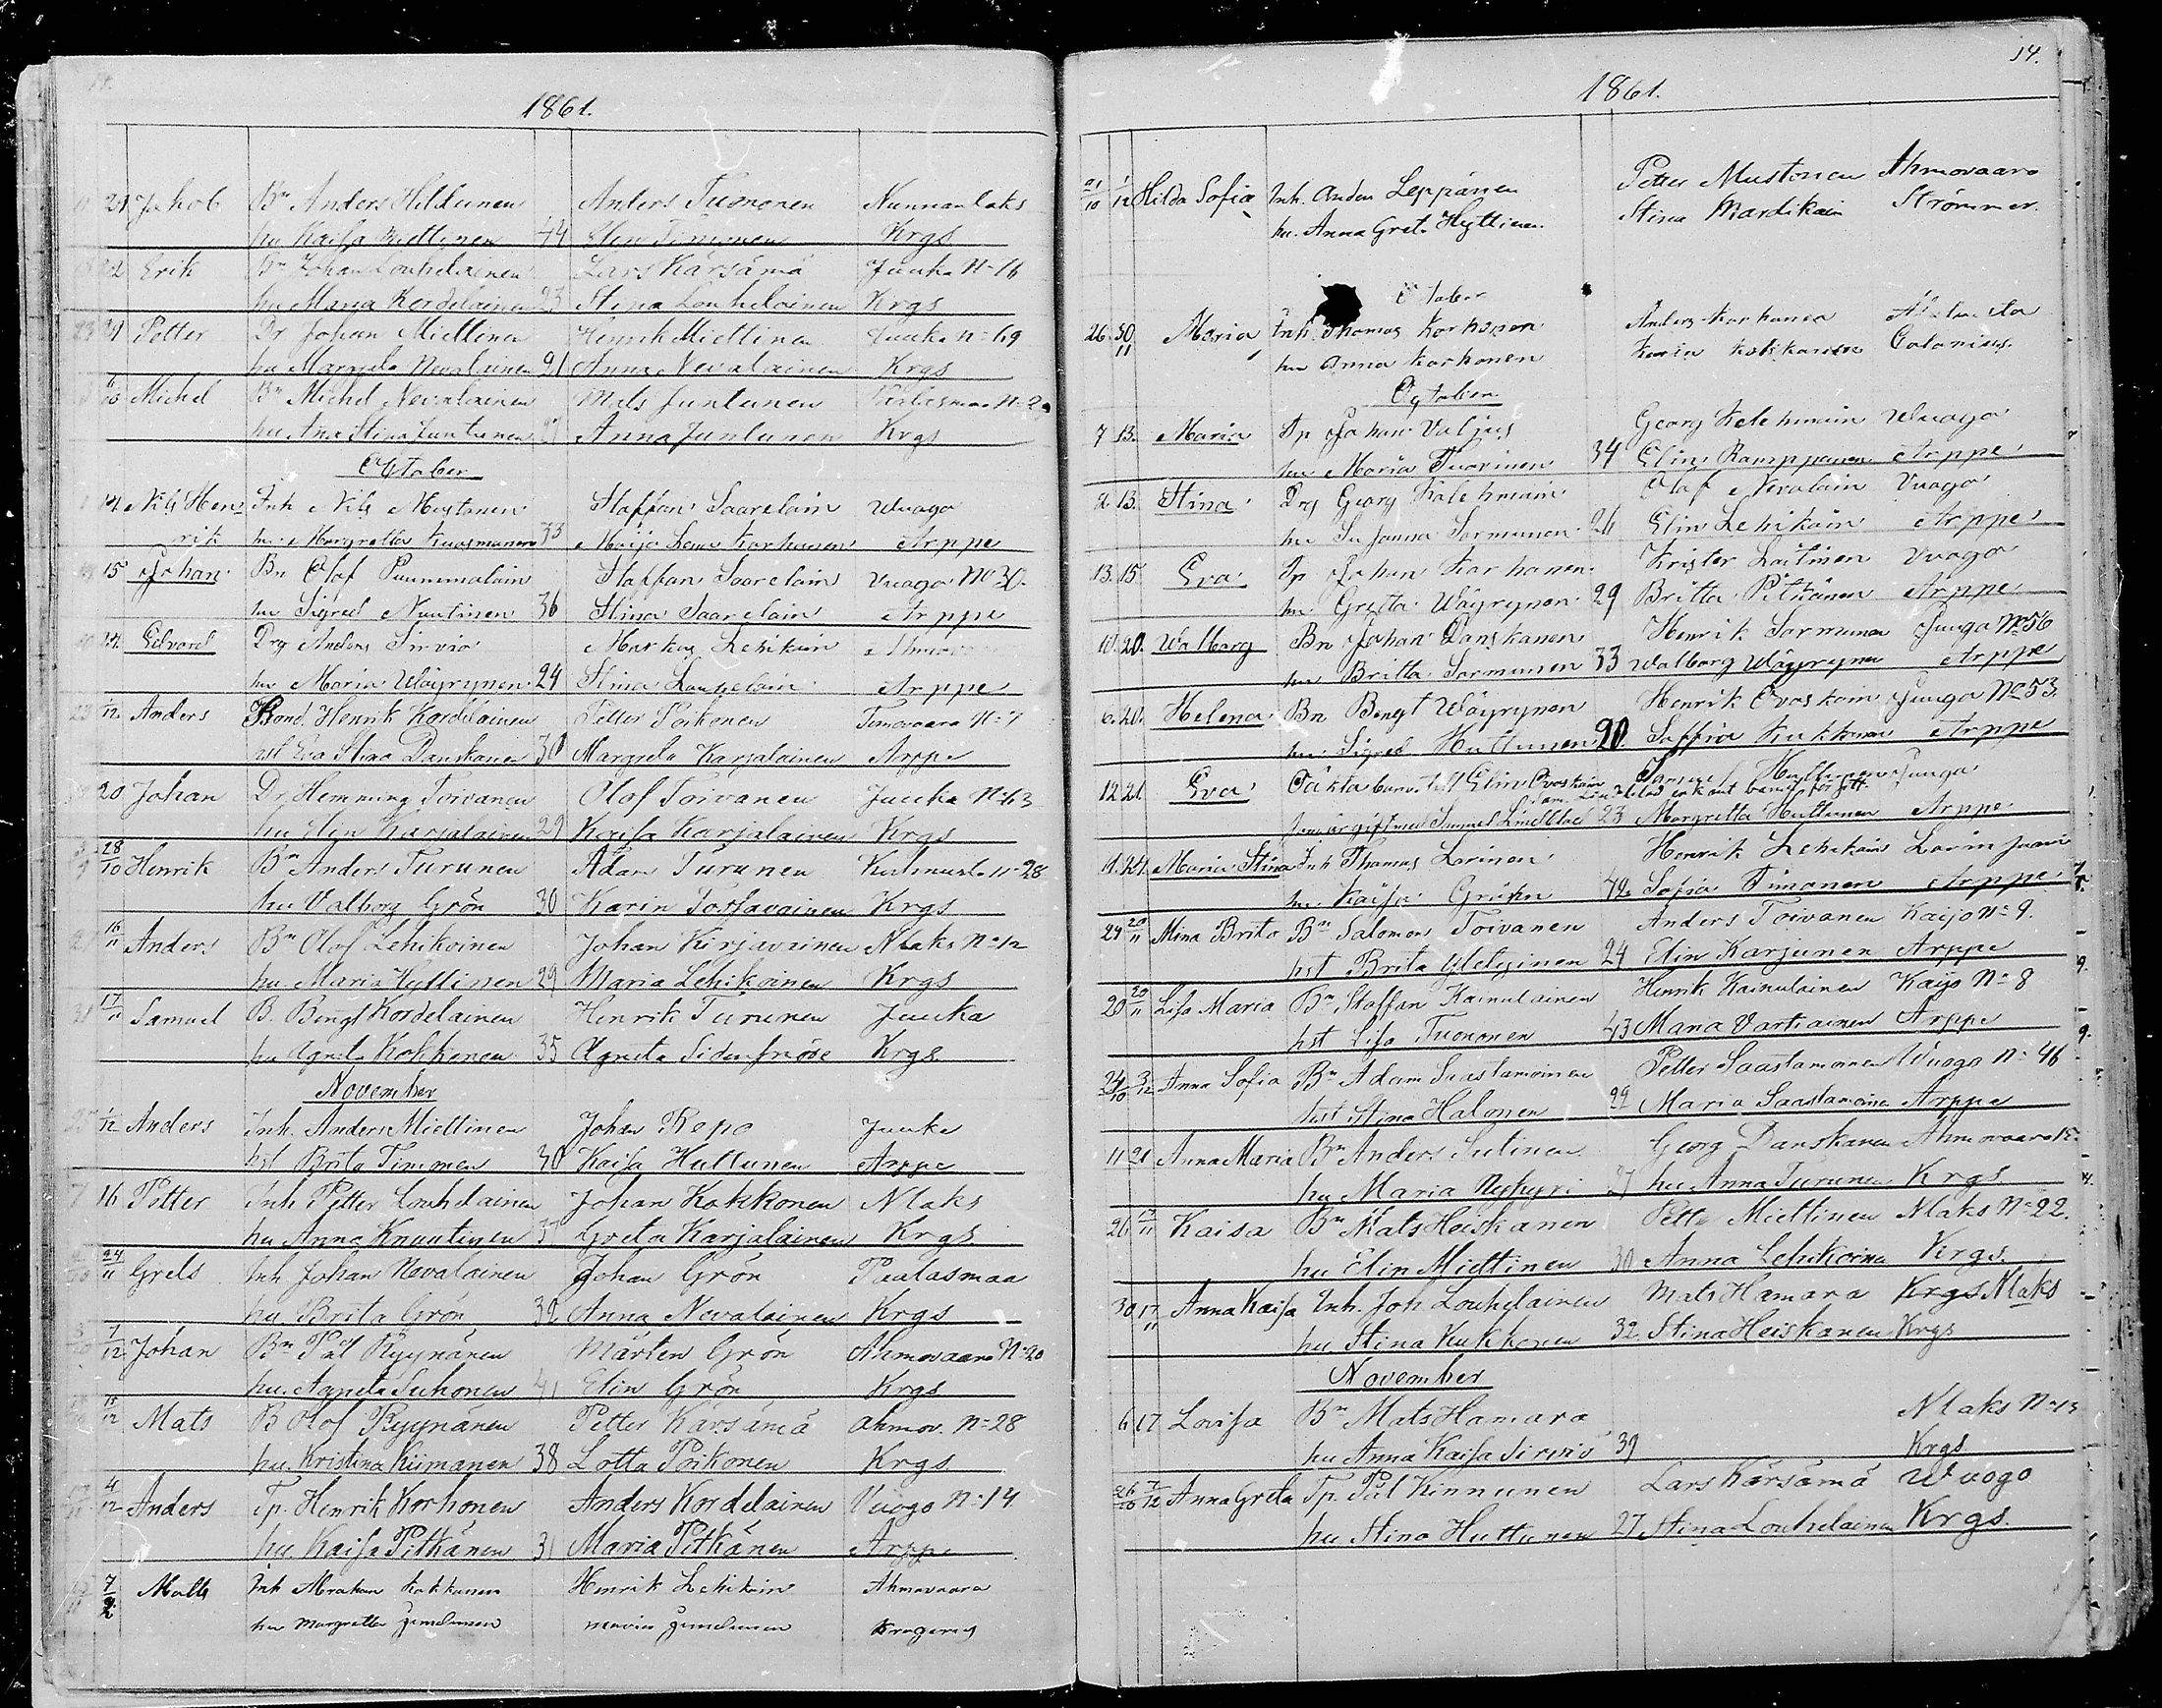 1861.
21 Jakob Bn Anders Hiltunen Anders Tuononen Nunnanlaks
hu Kaisa Miettinen 44 Elin Timonen Krgs
22 Erik Bn Johan Louhelainen Lars Kärsämä Juuka No 16
hu Maria Kordelainen 23 Stina Louhelainen Krgs
Petter Dr Johan Miettinen Henrik Miettinen Juuka No 69
hu Margreta Nevalainen 21 Anna Nevalainen Krgs
6/10 Michel Bn Michel Nevalainen Mats Juntunen
hu Anna Stina Juntunen Anna Juntunen Krgs
October
Nils Hen- Inh Nils Mustonen Staffan Saarelain Wuago
rik hu Margretta Kuosmanen 33 Maija Lena Korhonen Arppe
15 Johan Bn Olof Puumalain Staffan Saarelain Vuago No 30.
hu Sigred Nuutinen 36 Stina Saarelain Arppe
Edvard Drg Anders Sirviö Markus Lehikoin
hu Maria Wäyrynen 24 Stina Louhelain Arppe
1/12 Anders Bond. Henrik Kordelainen Petter Poikonen Timovaara No 7
hst Eva Stina Danskanen 30 Margreta Karjalainen Arppe
20 Johan Dr Hemming Toivanen Olof Toivanen Juuka No 63
hu Elin Karjalainen 29 Kaisa Karjalainen Krgs
28/10 Henrik Bn Anders Turunen Adam Turunen No 28
hu Valborg Grön 30 Karin Tossavainen Krgs
16/11 Anders Bn Olof Lehikoinen Johan Kirjavainen Nlaks No 12
hu Maria Hyttinen 29 Maria Lehikoinen Krgs
17/11 Samuel B. Bengt Kordelainen Henrik Turunen Juuka
hu Agneta Kokkonen 35 Agneta Sidensnöre Krgs
November
1/12 Anders Inh. Anders Miettinen Johan Repo Juuka
hst Brita Timonen 30 Kaisa Huttunen Arppe
7 16 Petter Inh Petter Louhelainen Johan Kokkonen Nlaks
hu Anna Knuutinen 37 Greta Karjalainen Krgs
24/11 Grels Inh Johan Nevalainen Johan Grön Paalasmaa
hu Brita Grön 32 Anna Nevalainen Krgs
1/12 Johan Bn Pål Ryynänen Mårten Grön Ahmovaara No 20
hu. Agneta Suhonen 41 Elin Grön Krgs
15/12 Mats B Olof Ryynänen Petter Kärsämä Ahmov. No 28
hu Kristina Kiimanen 38 Lotta Poikonen Krgs
4/12 Anders Tp. Henrik Korhonen Anders Kordelainen Vuogo No 14
hu Kaisa Pitkänen 31 Maria Pitkänen Arppe
Matts Inh Abraham Kokkonen Henrik Lehikoin Ahmovaara
hu Margretta Maria Krogerus
14.
1861.
21/10 1/12 Hilda Sofia Inh. Anders Leppänen Petter Mustonen Ahmovaara
hu. Anna Greta Hyttinen Stina Mardikain Strömmer.
October
26 30/11 Maria Inh. Thomas Korhonen Anders Korhonen
hu Anna Korhonen Karin Kokkonen Calonius
October
7 13. Maria Tp Johan Valjus Georg Kelehmain Wuago
hu Maria Tuovinen 34 Elin Ramppanen Arppe
2. 13. Stina Drg Georg Kelehmain Olof Nevalain Vuago
hu Susanna Sormunen 26 Elin Lehikoin Arppe
13. 15. Eva Tp Johan Korhonen Krister Laitinen Vuago
hu Gretta Wäyrynen 29 Britta Pitkänen Arppe
10. 20. Walborg Bn Johan Danskanen Henrik Sormunen Juuga No 56
hu Britta Sormunen 33 Walborg Wäyrynen Arppe
6. 20. Helena Bn Bengt Wäyrynen Henrik Ovaskain Juuga No 53.
hu Sigred Huttunen 20. Saffia Kukkonen Arppe
12 21. Eva Oäkta barn. Elin Ovaskain Huttunen Juuga
Samuel Lindblad 23 Margretta Huttunen Arppe
Maria Stina Inh Thomas Lorinen Henrik Lehikoin
hu Kaisa Gröhn 42. Sofia Timonen Arppe
24 20/11 Mina Brita Bn Salomon Toivanen Anders Toivanen Kaijo No 9.
hst Brita Yletyinen 24 Elin Karjunen Arppe
20 20/11 Lisa Maria Bn Staffan Kainulainen Henrik Kainulainen Kaijo No 8
hst Lisa Tuononen 43 Maria Vartiainen Arppe
24/10 3/12 Anna Sofia Bn Adam Saastamoinen Petter Saastamoinen Wuago No 46
hst Stina Halonen 22 Maria Saastamoinen Arppe
11 21 Anna Maria Bn Anders Sutinen Georg Danskanen Ahmovaara
hu Maria Nykyri 27 hu Anna Turunen Krgs
26 17/11 Kaisa Bn Mats Heiskanen Petter Miettinen Nlaks No 22.
hu Elin Miettinen 30 Anna Lehikoinen Krgs.
30 17/11 Anna Kaisa Inh. Joh Louhelainen Mats Hamara Krgs Nlaks
hu Stina Kukkonen 32 Stina Heiskanen Krgs
November
6 17 Lovisa Bn Mats Hamara Nlaks No 13
hu Anna Kaisa Sirviö 39 Krgs
26/10 7/12 Anna Greta Tp. Pål Kinnunen Lars Kärsämä Wuogo
hu Stina Huttunen 27 Stina Louhelainen Krgs.